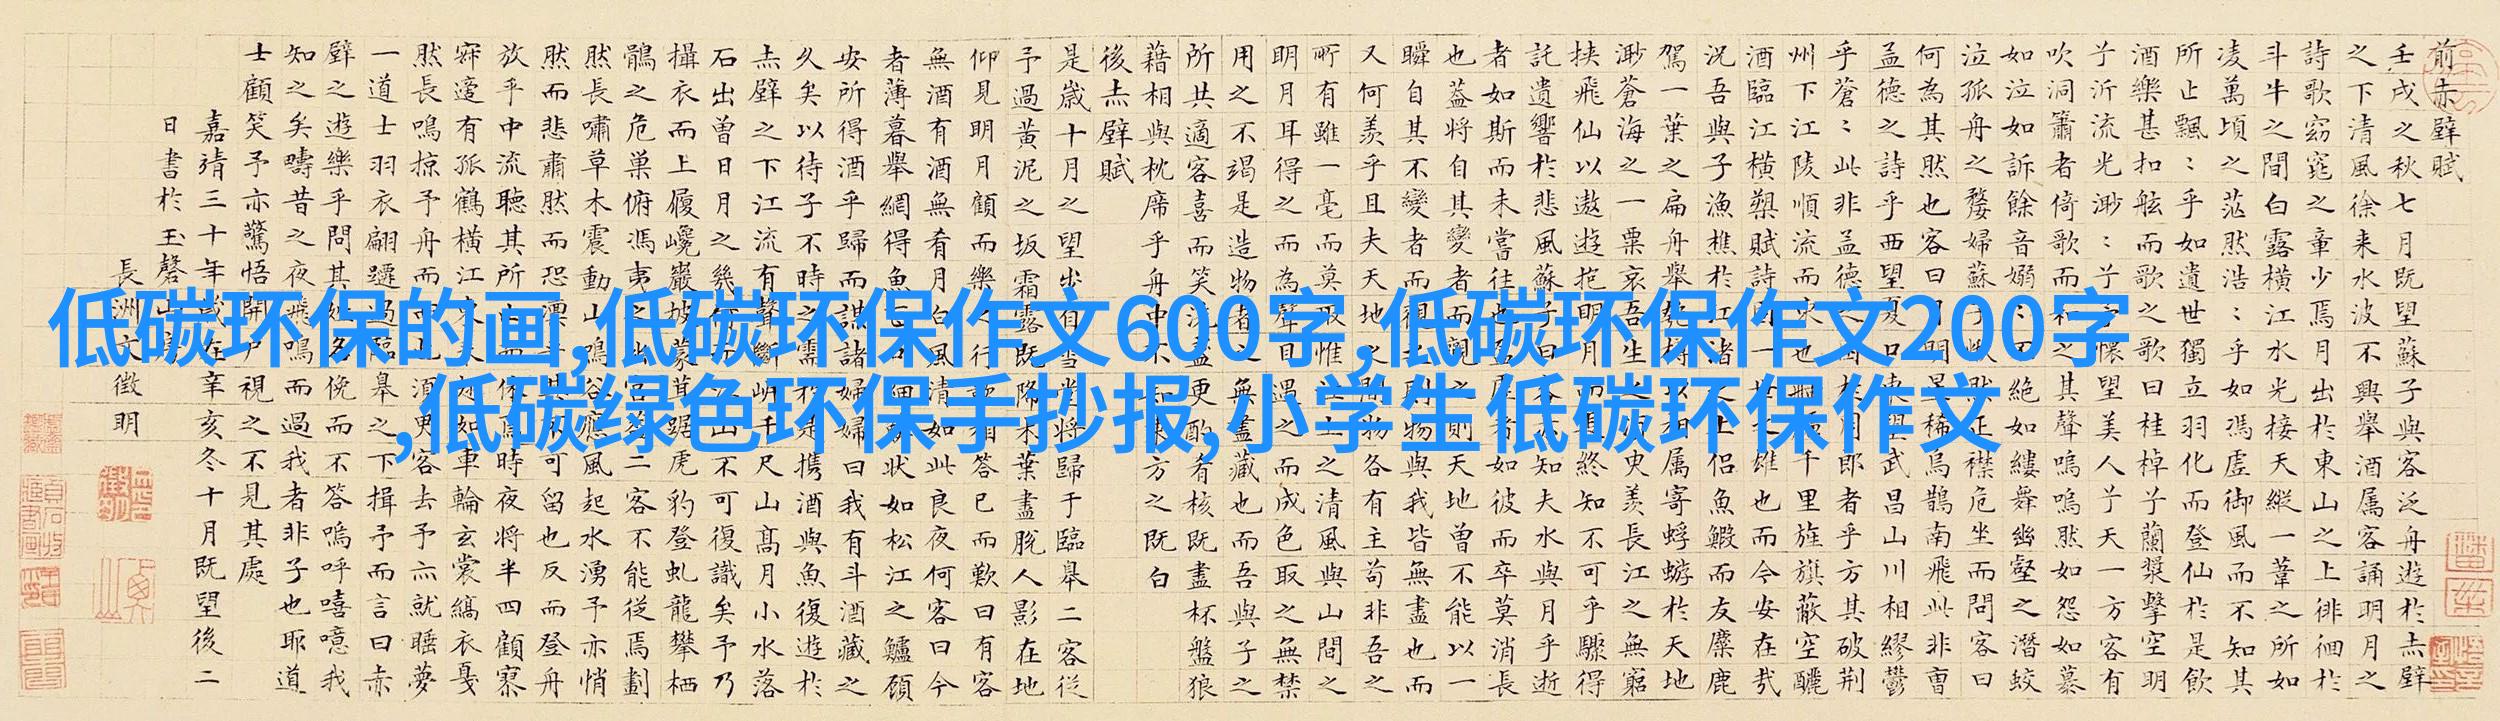 低碳环保的画,低碳环保作文600字,低碳环保作文200字
,低碳绿色环保手抄报,小学生低碳环保作文
前赤壁賦
壬戌之秋七月既望蘇子與客泛舟遊於赤壁
之下清風徐来水波不興舉酒属客誦明月之
詩歌窈窕之章少焉月出於東山之上徘徊於
斗牛之間白露橫江水光接天縱一葦之所如
凌萬頃之茫然浩:乎如馮虛御風而不知其
所止飄:乎如遺世獨立羽化而登仙於是飲
酒樂甚扣舷而歌之歌曰桂棹兮蘭槳擊空明
兮泝流光渺:兮予懷望美人兮天一方客有
吹洞簫者倚歌而和之其聲嗚嗚然如怨如慕
如泣如訴餘音嫋:不絕如縷舞幽壑之潛蛟
泣孤舟之嫠婦蘇子愀然正襟危坐而問客曰
何為其然也客曰月明星稀烏鵲南飛此非曹
孟德之詩乎西望夏口東望武昌山川相繆鬱
乎蒼:此非孟德之困於周郎者乎方其破荆
州下江陵順流而東也舳艫千里旌旗蔽空釃
酒臨江橫槊賦詩固一世之雄也而今安在哉
况吾與子漁樵於江渚之上侶魚鰕而友麋鹿
駕一葉之扁舟舉匏樽以相属寄蜉蝣於天地
渺蒼海之一粟哀吾生之須臾羨長江之無窮
挾飛仙以遨遊抱明月而長終知不可乎驟得
託遺響於悲風蘇子曰客亦知夫水與月乎逝
者如斯而未嘗往也盈虛者如彼而卒莫消長
也蓋將自其變者而觀之則天地曾不能以一
瞬自其不變者而觀之則物與我皆無盡也而
又何羨乎且夫天地之間物各有主苟非吾之
所有雖一毫而莫取惟江上之清風與山間之
明月耳得之而為聲目遇之而成色取之無禁
用之不竭是造物者之無盡藏也而吾與子之
所共適客喜而笑洗盞更酌肴核既盡杯盤狼
藉相與枕席乎舟中不知東方之既白
後赤壁賦
是歲十月之望步自雪堂將歸于臨臯二客從
予過黃泥之坂霜露既降木葉盡脫人影在地
仰見明月顧而樂之行歌相答已而歎曰有客
無酒有酒無肴月白風清如此良夜何客曰今
者薄暮舉網得魚巨口細鱗狀如松江之鱸顧
安所得酒乎歸而謀諸婦婦曰我有斗酒藏之
久矣以待子不時之需於是攜酒與魚復遊於
赤壁之下江流有聲斷岸千尺山高月小水落
石出曾日月之幾何而江山不可復識矣予乃
攝衣而上履巉巖披蒙茸踞虎豹登虬龍攀栖
鶻之危巢俯馮夷之幽宮蓋二客不能從焉劃
然長嘯草木震動山鳴谷應風起水湧予亦悄
然而悲肅然而恐凛乎其不可留也反而登舟
放乎中流聽其所止而休焉時夜將半四顧寂
寥適有孤鶴橫江東来翅如車輪玄裳縞衣戛
然長鳴掠予舟而西也須臾客去予亦就睡夢
一道士羽衣翩躚過臨臯之下揖予而言曰赤
壁之遊樂乎問其姓名俛而不答嗚呼噫嘻我
知之矣疇昔之夜飛鳴而過我者非子也耶道
士顧笑予亦驚悟開戶視之不見其處
嘉靖三十年歲在辛亥冬十月既望後二
日書於玉磬山房
長洲文徵明